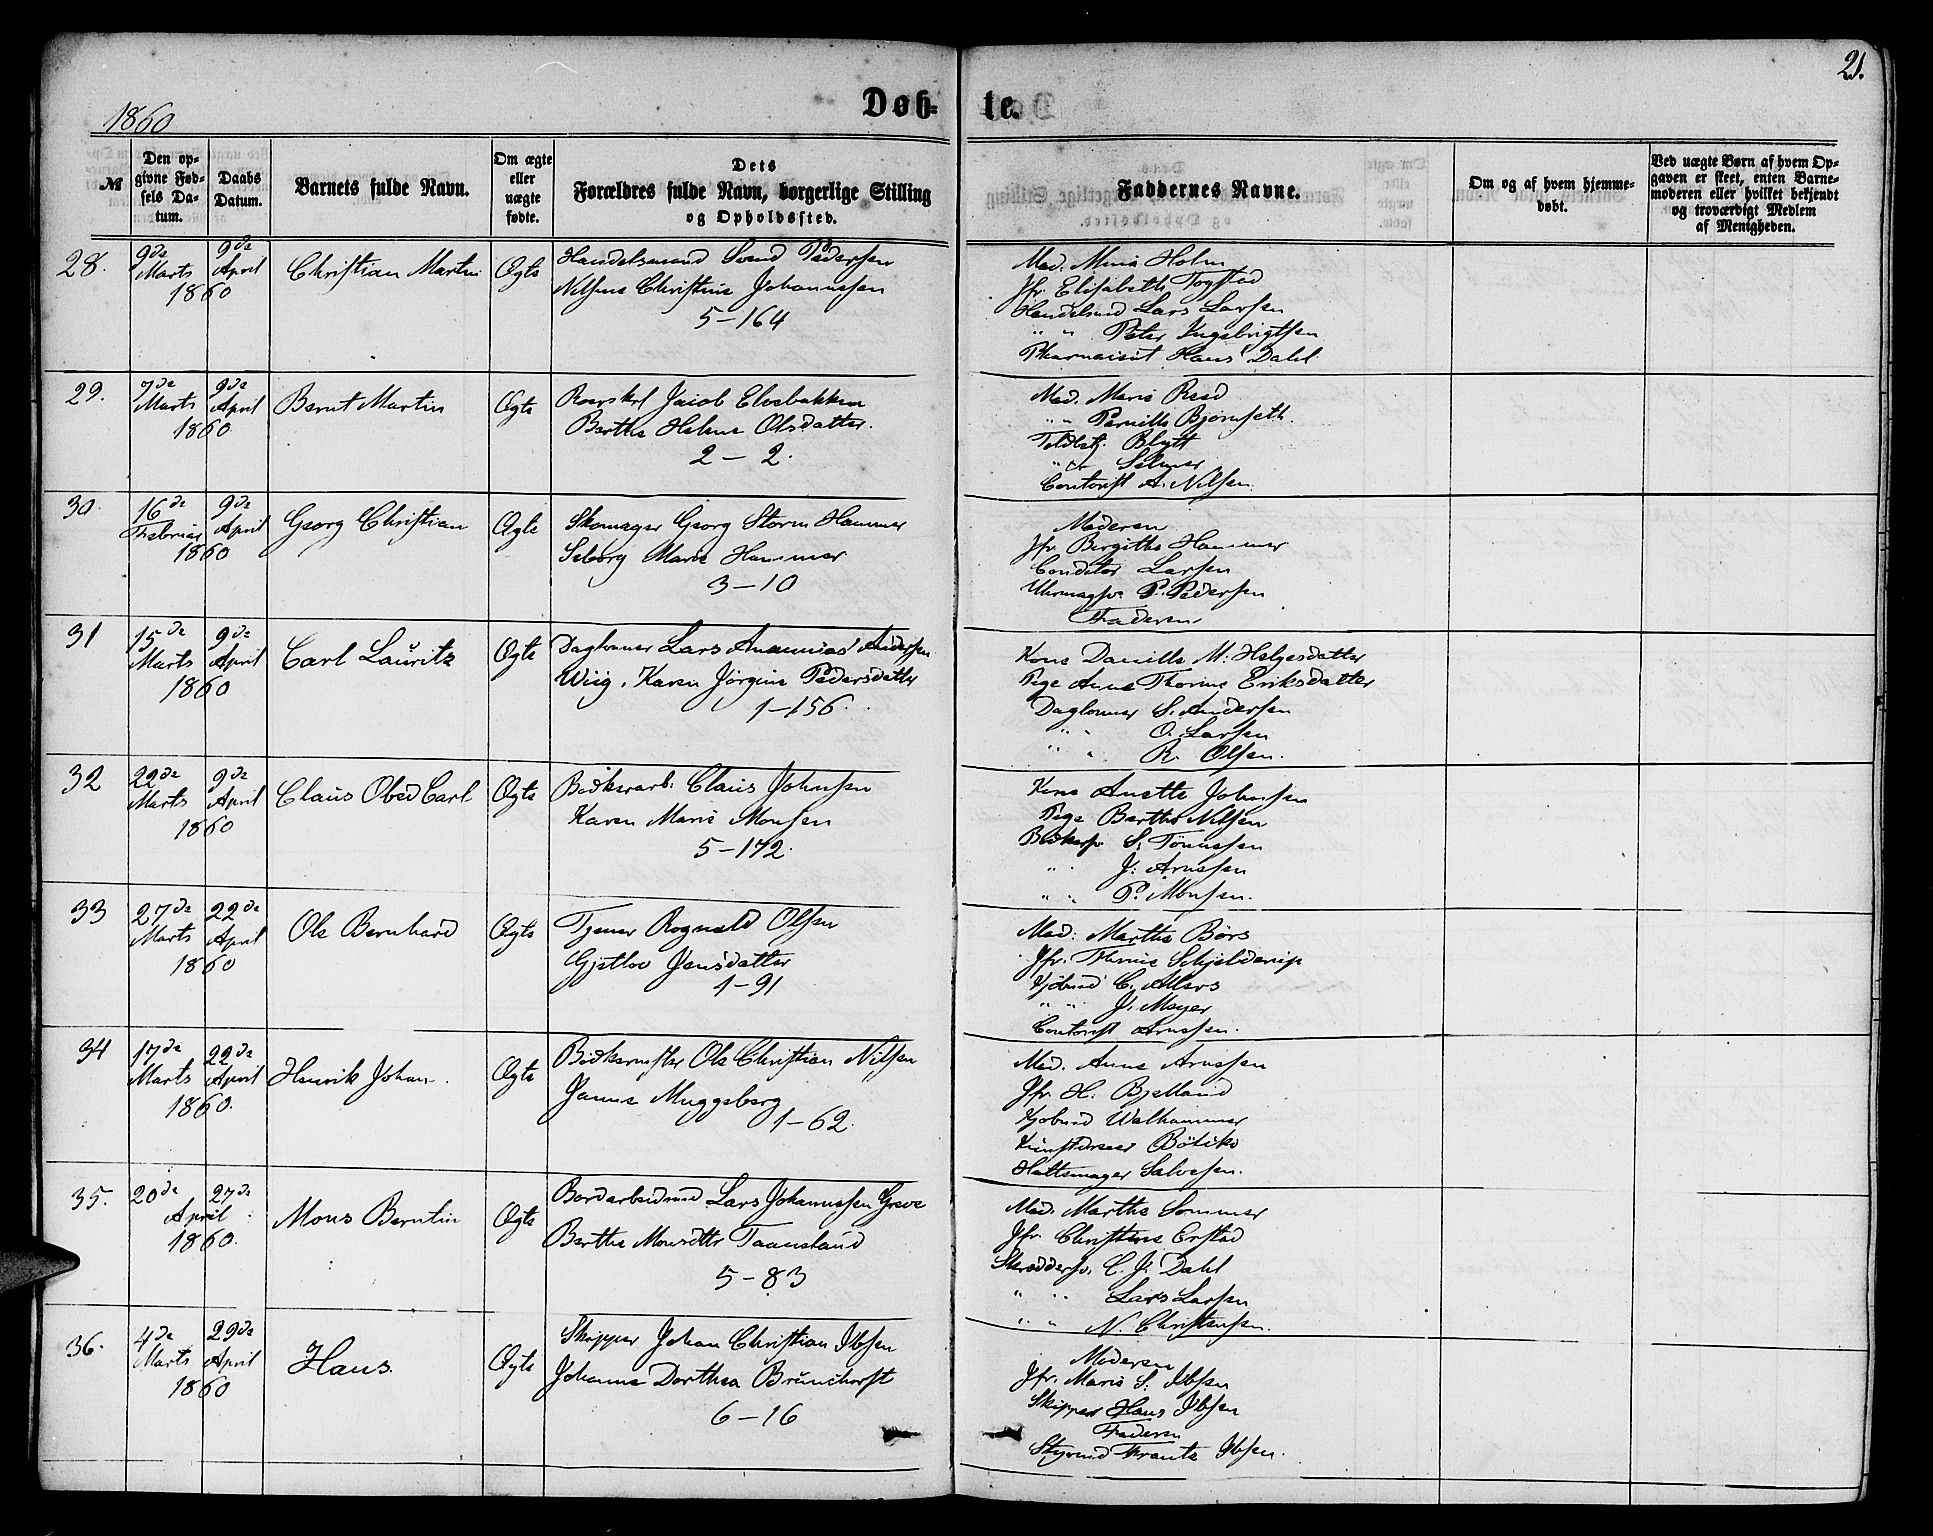 21.
1860
Døb- te.
№
Den op-
givne Fød-
sels Da-
tum.
Daabs
Datum.
Barnets fulde Navn.
Om ægte
eller
uægte
fødte.
Dets
Forældres fulde Navn, borgerlige Stilling
og Opholdssted.
Faddernes Navne.
Om og af hvem hjemme-
døbt.
Ved uægte Børn af hvem Op-
gaven er skeet, enten Barne-
moderen eller hvilket bekjendt
og troværdigt Medlem
af Menigheden.
28.
9de
Marts
9de
April
1860
Christian Martin
Ægte
Handelsmand Svend Pedersen
Nilsine Christine Johannesen
5-164
Mad. Marie Holm
Jfr. Elisabeth Togstad
Handelsmd Lars Larsen
" " Peter Ingebrigtsen
Pharmaceut Hans Dahl
29.
7de
Marts
9de
April
1860
Bernt Martin
Ægte
Roerskrl Jacob Elvebakken
Berthe Helene Olsdatter.
2-2.
Mad. Marie Reed
" " Pernille Bjørnseth.
Toldbetj. Blytt
" " Selmer
Contorist A. Nilsen.
30.
16de
Februar
9de
April
1860
Georg Christian
Ægte
Skomager Georg Storm Hammer
Seborg Marie Hammer
3-10
Moderen
Jfr. Birgithe Hammer
Conditor Larsen
Uhrmagsv. P. Pedersen
Faderen
31
15de
Marts
9de
April
1860
Carl Lauritz
Ægte
Daglønner Lars Ananias Andersen
Wiig, Karen Jørgine Pedersdatter
1-156.
Kone Danielle M: Helgesdatter
Pige Anne Thorine Eriksdatter
Daglønner S. Andersen
" " O. Larsen
" " R. Olsen.
32
22de
Marts
9de
April
1860
Claus Obed Carl
Ægte
Bødkerarb. Claus Johnsen
Karen Marie Monsen
5-172.
Kone Anette Johnsen
Pige Berthe Nilsen
Bødkersv. S. Tønnesen
" J: Arnesen
" " P. Monsen.
33
27de
Marts
22de
April
1860
Ole Bernhard
Ægte
Tjener Rognald Olsen
Gjetlov Jensdatter
1-91
Mad: Marthe Børs
Jfr. Thrine Schjelderup
Kjøbmd C. Ahlers
" " J. Meyer
Contorist Arnesen.
34
17de
Marts
22de
April
1860.
Henrik Johan.
Ægte
Bødkermester Ole Christian Nilsen
Janna Muggeberg
1-62.
Mad. Anne Arnesen
Jfr. H. Bjelland
Kjøbmd Walhammer
Bøtiko
Hattemager Salvesen.
35.
20de
27de
April
1860.
Mons Berntin
Ægte
Bordarbeidmd Lars Johannesen Greve
Berthe Monsdttr Taaneland
5-83
Mad. Marthe Sommer
Jfr. Christine Erstad
Skræddersv. C. J. Dahl
" " Lars Larsen
" " N. Christensen.
36.
4de
Marts
29de
April
1860
Hans.
Ægte
Skipper Johan Christian Ibsen
Johanne Dorthea Brunchorst
6-16
Moderen
Jfr. Marie S: Ibsen
Skipper Hans Ibsen
Faderen
Styrmd Frantz Ibsen.